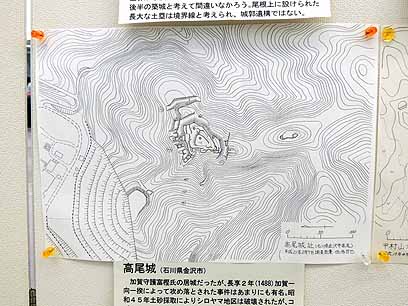 後半の築城と考えて間違いなかろう。尾根上に設けられた
長大な土塁は境界線と考えられ、城郭遺構ではない。
高尾城址
中村山
高尾城（石川県金沢市）
加賀守護富樫氏の居城だったが、長享２年（1488）加賀一
向一揆によって攻め落とされた事件はあまりにも有名。昭
和４５年土砂採取によりシロヤマ地区は破壊されたが、コ